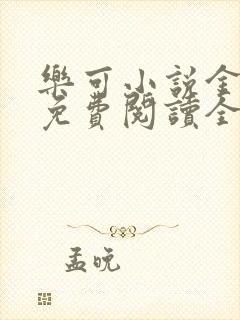 樂可小説全
免費閱讀全
孟晚